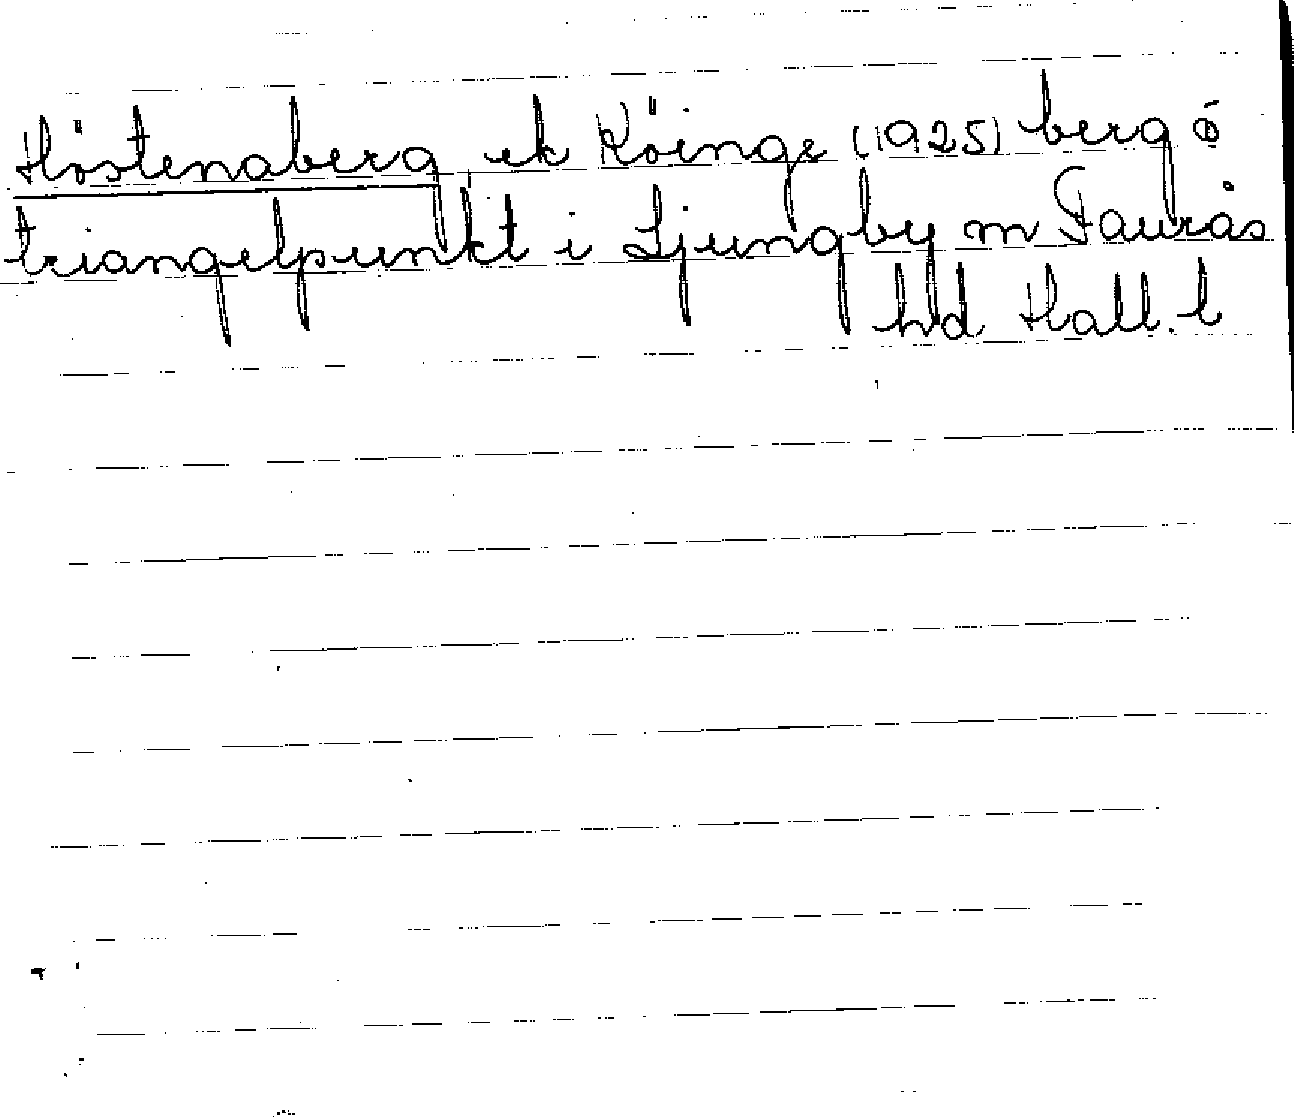 Höstenaberg ek Köinge (1925) berg o
triangelpunkt i Ljungby sn Faurås
hd Hall. l